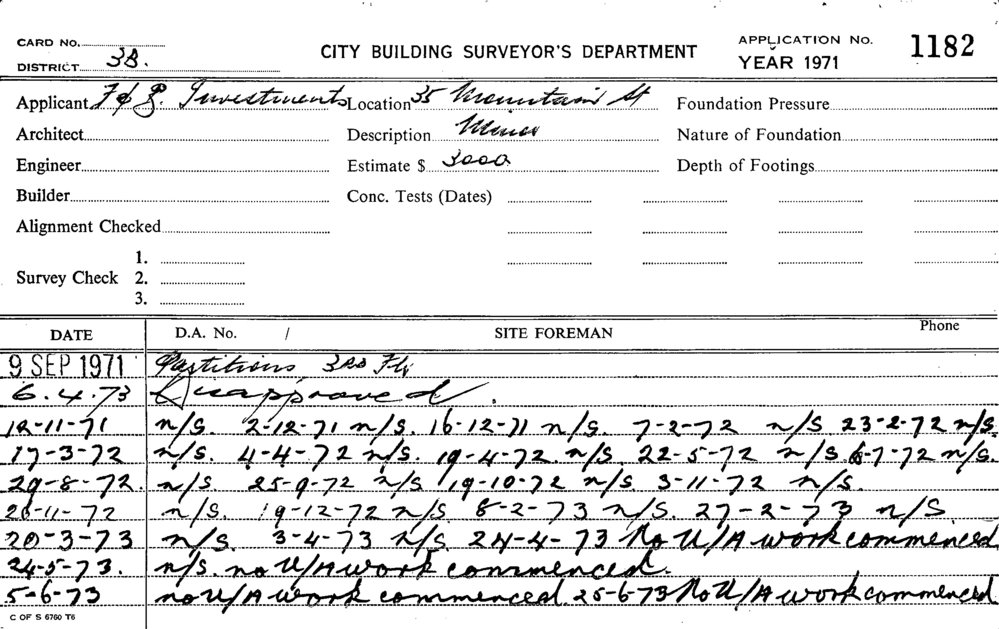 CARD No. CITY BUILDING SURVEYOR'S DEPARTMENT APPLICATION No. 1182
DISTRICT 3B. YEAR 1971
Applicant F & Investments Location 35 Mountain St Foundation Pressure
Architect Description Minor Nature of Foundation
Engineer Estimate $ 3000 Depth of Footings
Builder Conc. Tests (Dates)
Alignment Checked
1.
Survey Check 2.
3.
DATE D.A. No. / SITE FOREMAN Phone
9 SEP 1971 Partitions 3RD Flr
6.4.73 Disapproved.
12-11-71 n/S. 2-12-71 n/S. 16-12-71 n/S. 7-2-72 n/S 23-2-72 n/S.
17-3-72 n/S. 4-4-72 n/S. 19-4-72. n/S 22-5-72 n/S. 6-7-72 n/S.
29-8-72. n/S 25-9-72 n/S 19-10-72 n/S. 3-11-72 n/S.
20-11-72 n/S. 19-12-72 n/S. 8-2-73 n/S. 27-2-73 n/S
20-3-73 n/S. 3-4-73 n/S. 24-4-73 No U/A work commenced
24-5-73. n/S. no U/A work commenced.
5-6-73 no U/A work commenced. 25-6-73 No U/A work commenced.
C OF S 6760 T6